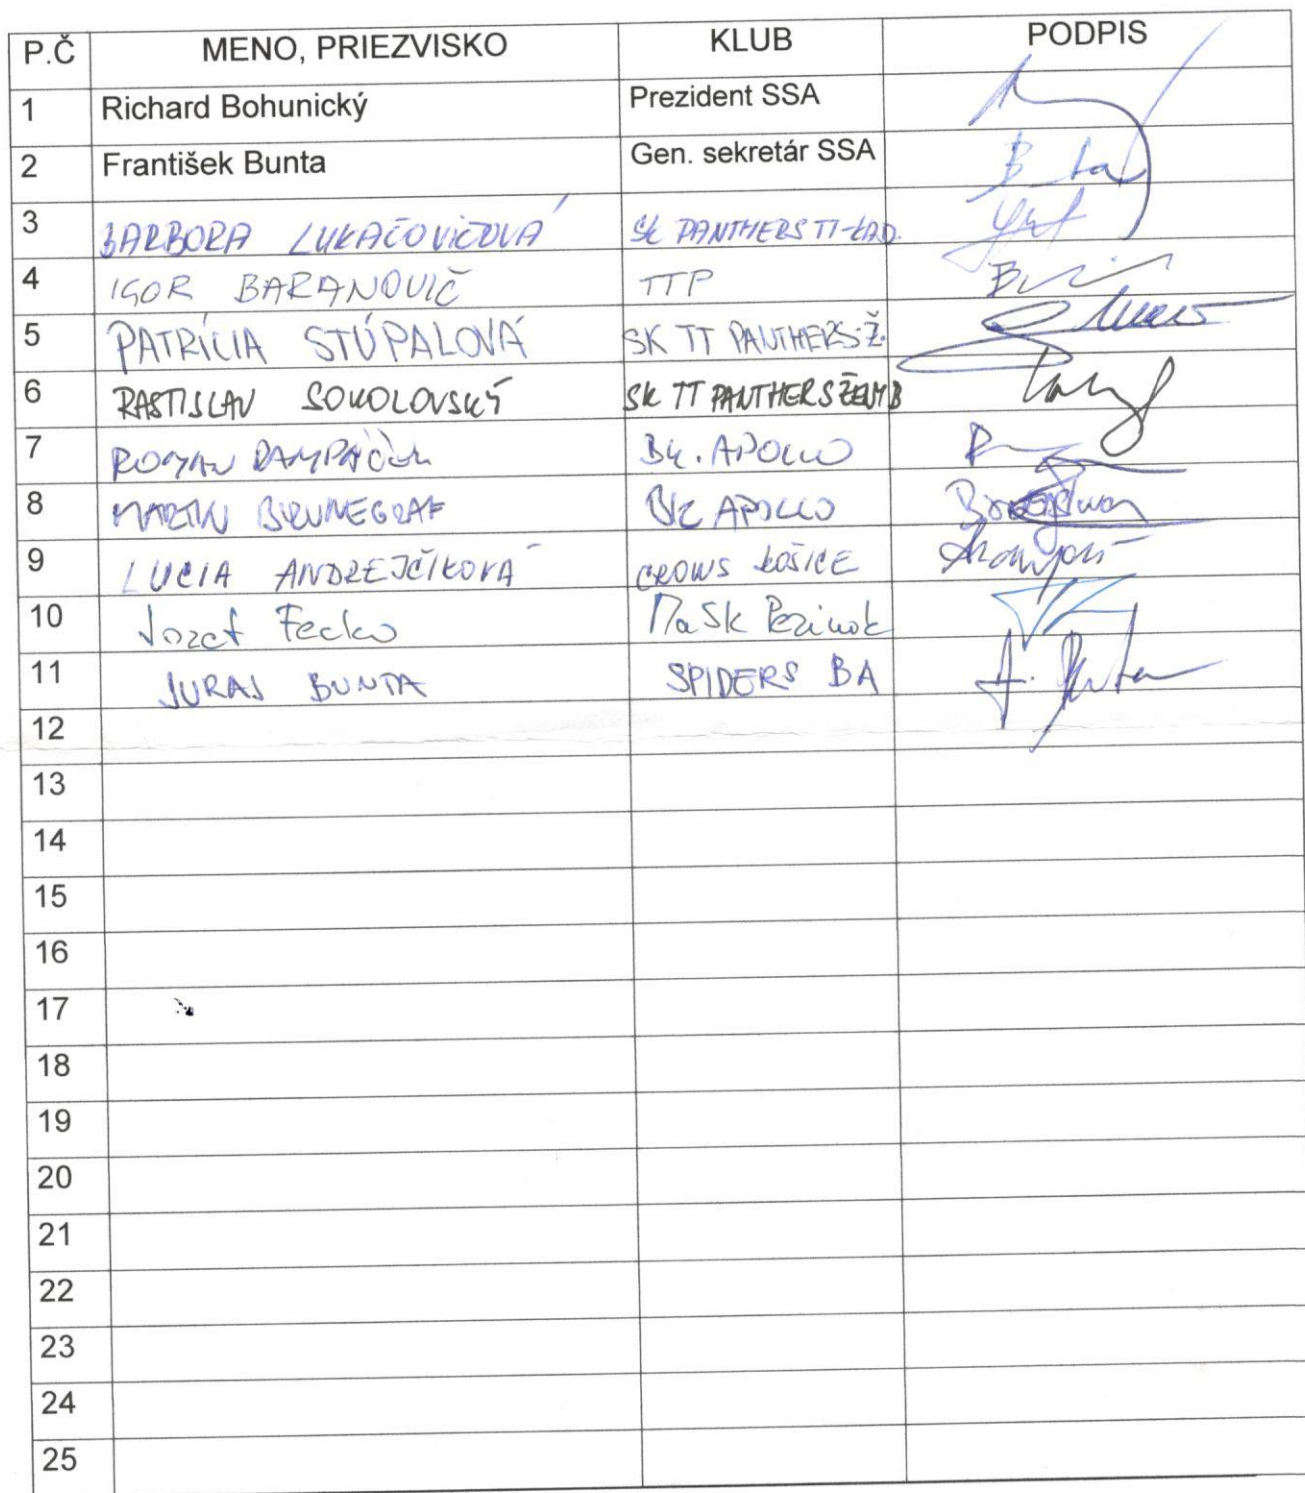 P.Č MENO, PRIEZVISKO KLUB PODPIS
1 Richard Bohunický Prezident SSA
2 František Bunta Gen. sekretár SSA
3 BARBORA LUKAČOVIČOVÁ SK PANTHERS TT-KAD.
4 IGOR BARANOVIČ TTP
5 PATRÍCIA STÚPALOVÁ SK TT PANTHERS-Ž.
6 RASTISLAV SOKOLOVSKÝ SK TT PANTHERS ŽENY B
7 ROMAN BK. APOLLO
8 MARTIN BRUNEGRAF BK APOLLO
9 LUCIA ANDREJČÍKOVÁ CROWS KOŠICE
10 Jozef Fecko Pezinok
11 JURAJ BUNTA SPIDERS BA
12
13
14
15
16
17
18
19
20
21
22
23
24
25